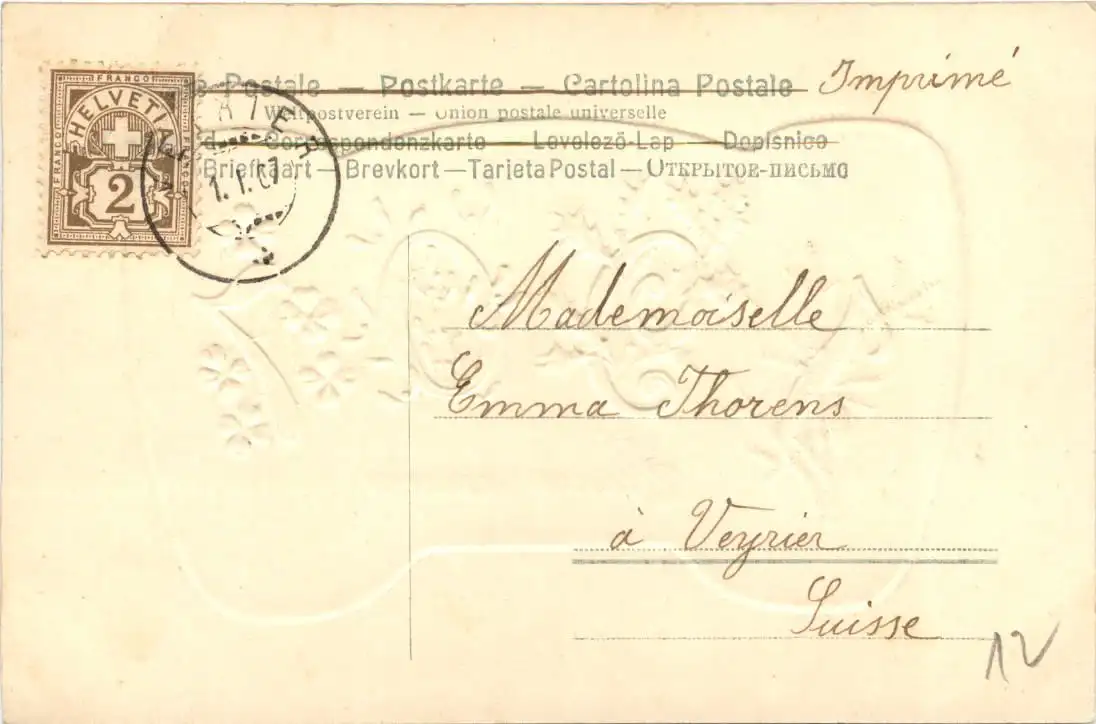 FRANCO
HELVETIA
FRANCO
2
1.1.07
Postale — Postkarte — Cartolina Postale
Imprimé
Weltpostverein — Union postale universelle
Correspondenzkarte — Levelező-Lap — Dopisnice
Briefkaart — Brevkort — Tarjeta Postal — Открытое-письмо
Mademoiselle
Emma Thorens
à Veyrier
Suisse
12